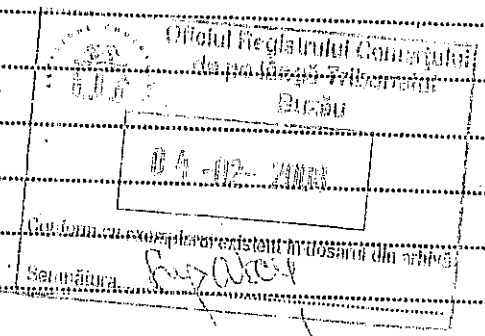 Oficiul Registrului Comerțului
de pe lângă Tribunalul
Buzău
04 -02-
Conform cu exemplarul existent în dosarul din arhivă
Semnătura